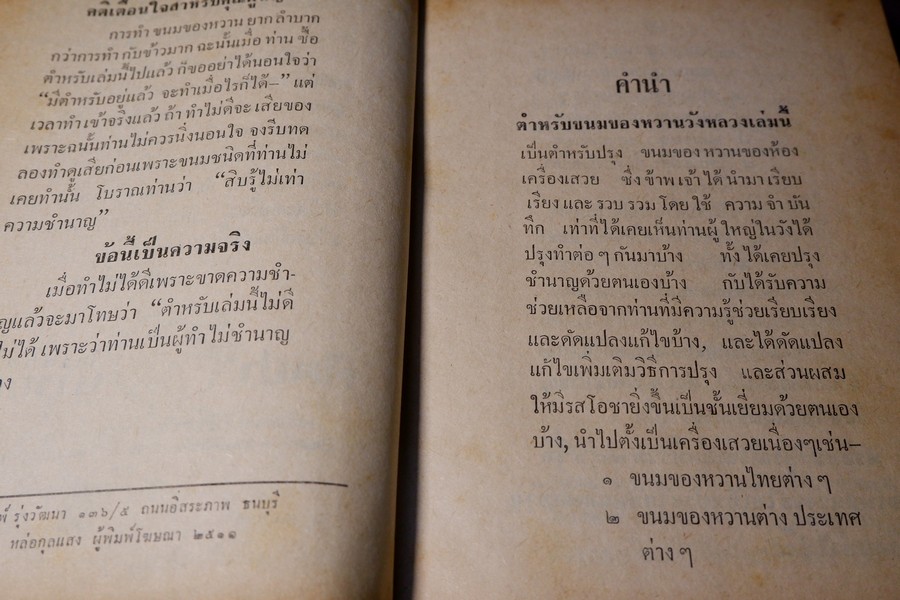 คติเตือนใจสำหรับ
การทำ ขนมของหวาน ยาก ลำบาก
กว่าการทำ กับข้าวมาก ฉะนั้นเมื่อ ท่าน ซื้อ
ตำหรับเล่มนี้ไปแล้ว ก็ขออย่าได้นอนใจว่า
“มีตำหรับอยู่แล้ว จะทำเมื่อไรก็ได้–” แต่
เวลาทำ เข้าจริงแล้ว ถ้า ทำไม่ดีจะ เสียของ
เพราะฉนั้นท่านไม่ควรนิ่งนอนใจ จงรีบทด
ลองทำดูเสียก่อนเพราะขนมชนิดที่ท่านไม่
เคยทำนั้น โบราณท่านว่า “สิบรู้ไม่เท่า
ความชำนาญ”
ข้อนี้เป็นความจริง
เมื่อทำไม่ได้ดีเพราะขาดความชำ-
ญแล้วจะมาโทษว่า “ตำหรับเล่มนี้ไม่ดี
ไม่ได้ เพราะว่าท่านเป็นผู้ทำไม่ชำนาญ
อง
พ์ รุ่งวัฒนา ๑๓๖/๕ ถนนอิสระภาพ ธนบุรี
หล่อกุลแสง ผู้พิมพ์โฆษณา ๒๕๑๑
คำนำ
ตำหรับขนมของหวานวังหลวงเล่มนี้
เป็นตำหรับปรุง ขนมของ หวานของห้อง
เครื่องเสวย ซึ่ง ข้าพ เจ้า ได้ นำมา เรียบ
เรียง และ รวบ รวม โดย ใช้ ความ จำ บัน
ทึก เท่าที่ได้เคยเห็นท่านผู้ ใหญ่ในวังได้
ปรุงทำต่อ ๆ กันมาบ้าง ทั้ง ได้เคยปรุง
ชำนาญด้วยตนเองบ้าง กับได้รับความ
ช่วยเหลือจากท่านที่มีความรู้ช่วยเรียบเรียง
และดัดแปลงแก้ไขบ้าง, และได้ดัดแปลง
แก้ไขเพิ่มเติมวิธีการปรุง และส่วนผสม
ให้มีรสโอชายิ่งขึ้นเป็นชั้นเยี่ยมด้วยตนเอง
บ้าง, นำไปตั้งเป็นเครื่องเสวยเนื่องๆเช่น–
๑ ขนมของหวานไทยต่าง ๆ
๒ ขนมของหวานต่าง ประเทศ
ต่าง ๆ